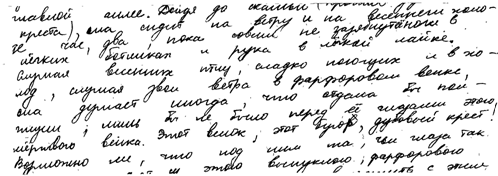 главной аллее. Дойдя до скамьи (против дубового
креста), она сидит на ветру и на весеннем холо-
де час, два, пока совсем не зазябнут ноги в
легких ботинках и рука в узкой лайке.
Слушая весенних птиц, сладко поющих и в хо-
лод, слушая звон ветра в фарфоровом венке,
она думает иногда, что отдала бы пол-
жизни, лишь бы не было перед ее глазами этого
мертвого венка. Этот венок, этот бугор, дубовый крест!
Возможно ли, что под ним та, чьи глаза так
этого выпуклого фарфорового
с этим